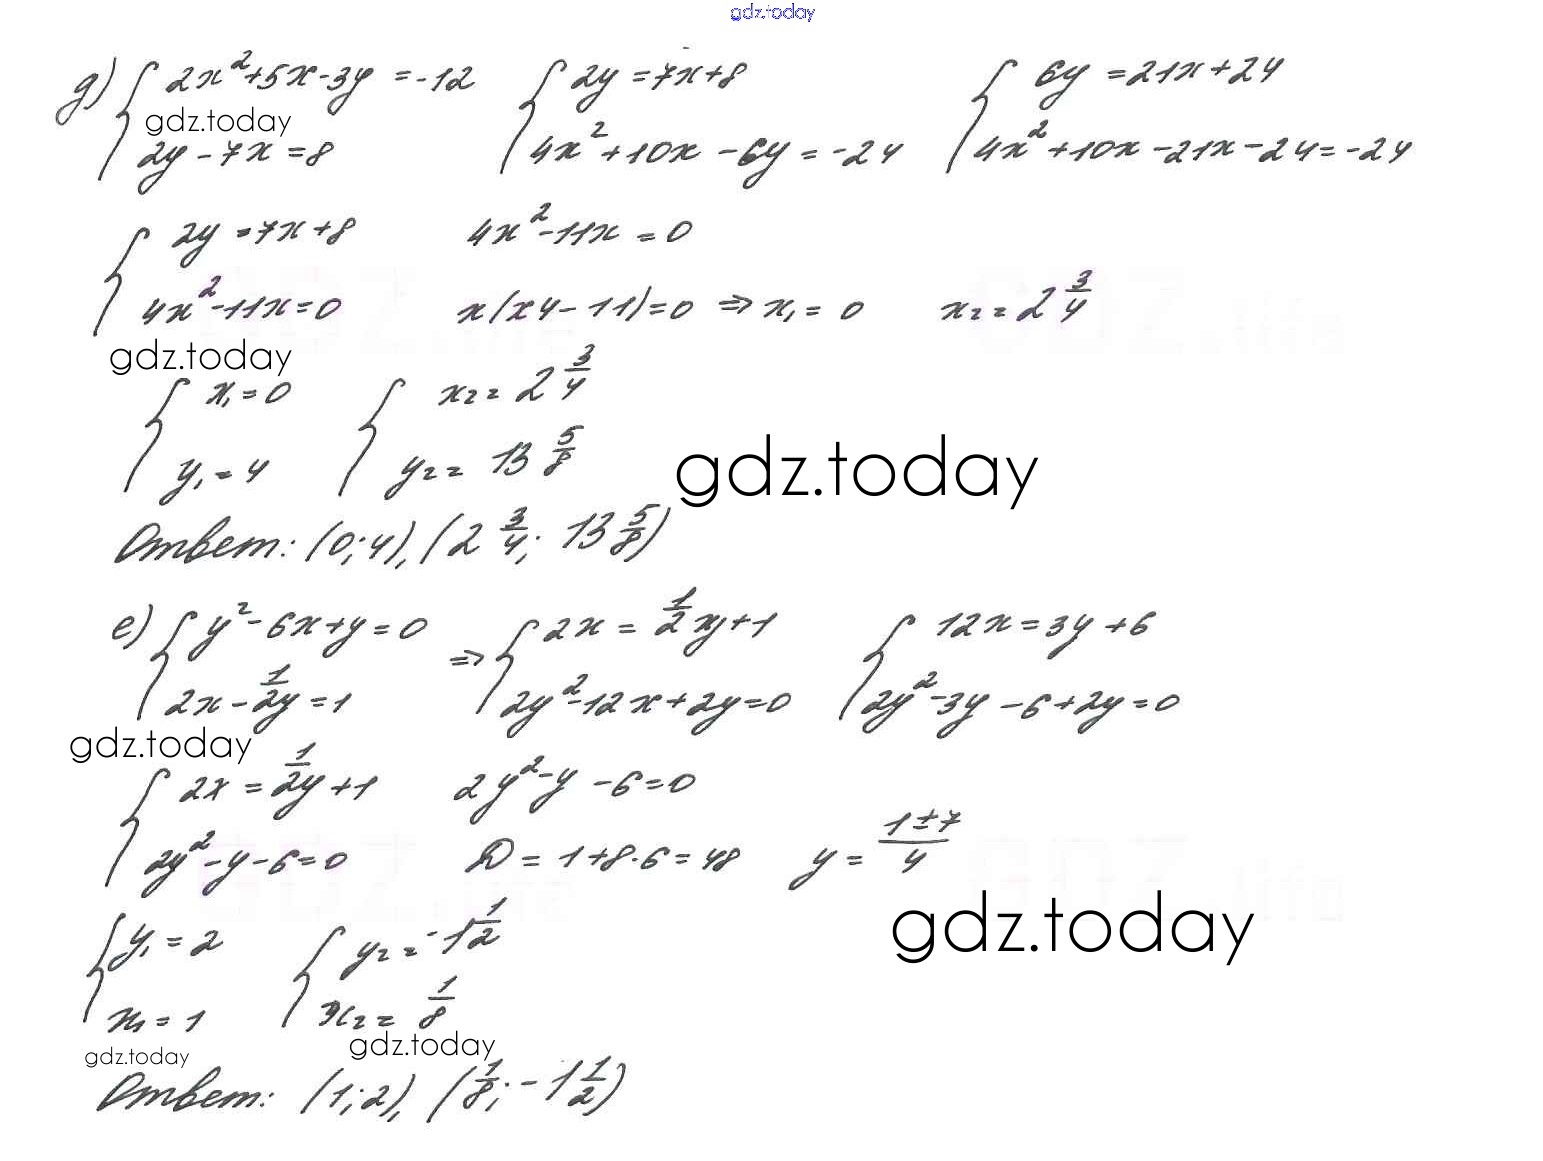 gdz.today
д) { 2x²+5x-3y = -12 { 2y = 7x+8 { 6y = 21x+24
gdz.today
2y - 7x = 8 4x²+10x - 6y = -24 4x²+10x - 21x - 24 = -24
{ 2y = 7x+8 4x² - 11x = 0
4x² - 11x = 0 x(x4 - 11) = 0 => x₁ = 0 x₂ = 2 3/4
gdz.today
{ x₁ = 0 { x₂ = 2 3/4
y₁ = 4 y₂ = 13 5/8
gdz.today
Ответ: (0; 4), (2 3/4; 13 5/8)
е) { y² - 6x + y = 0 => { 2x = 1/2 y + 1 { 12x = 3y + 6
2x - 1/2y = 1 2y² - 12x + 2y = 0 2y² - 3y - 6 + 2y = 0
gdz.today
{ 2x = 1/2y + 1 2y² - y - 6 = 0
2y² - y - 6 = 0 D = 1+8·6 = 48 y = (1±7)/4
gdz.today
{ y₁ = 2 { y₂ = -1 1/2
x₁ = 1 x₂ = 1/8
gdz.today gdz.today
Ответ: (1; 2), (1/8; -1 1/2)